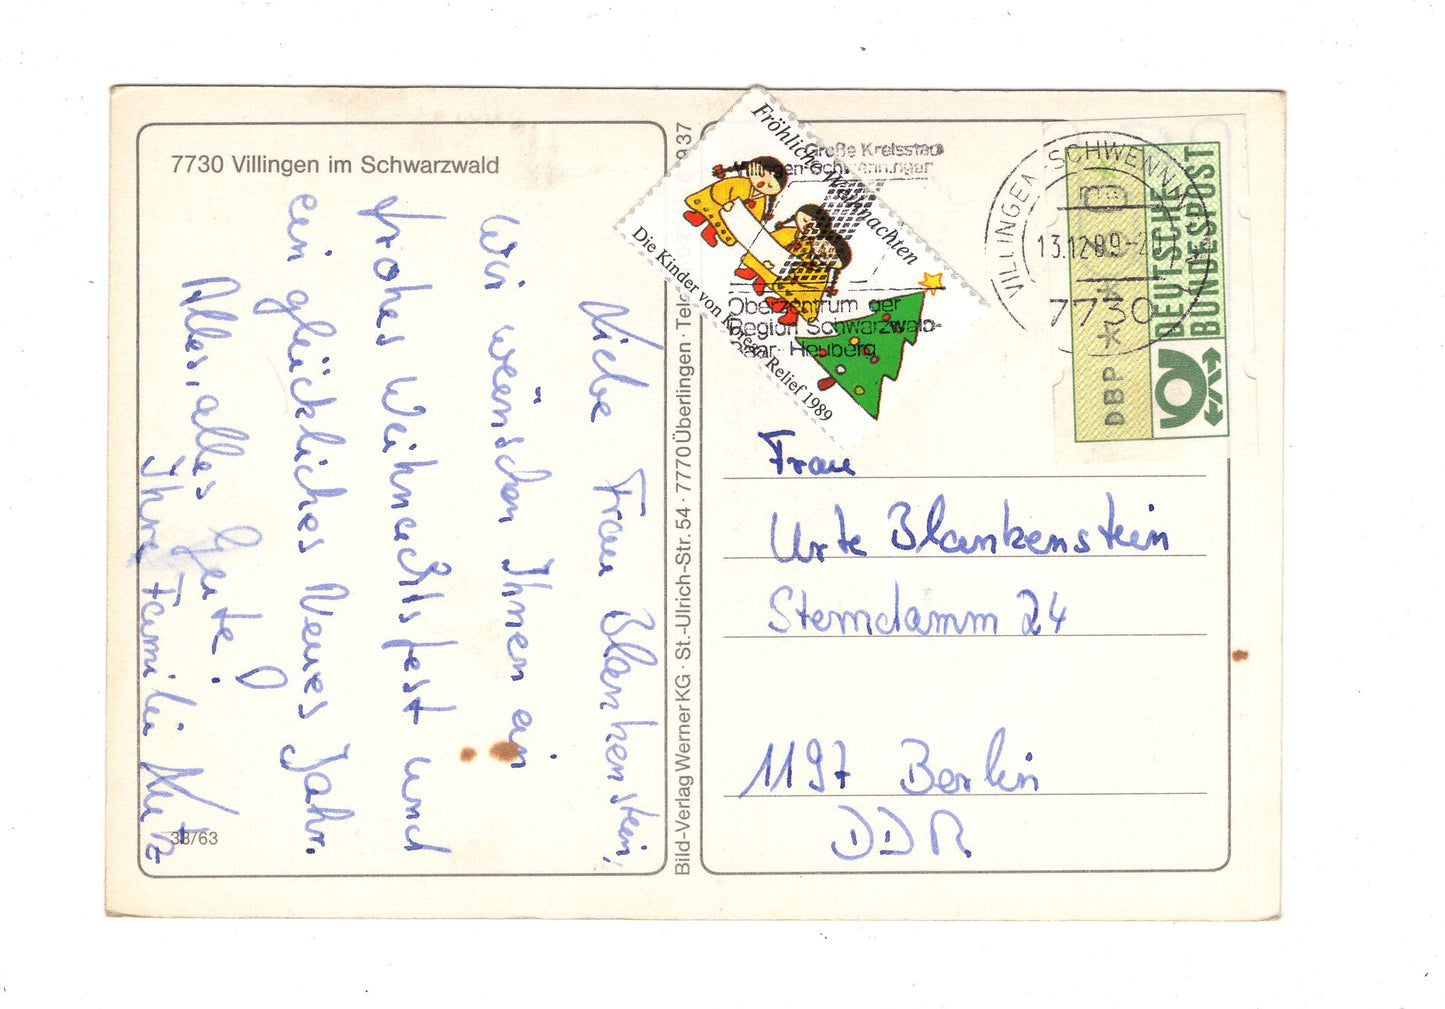 7730 Villingen im Schwarzwald
Liebe Frau Blankenstein,
Wir wünschen Ihnen ein
frohes Weihnachtsfest und
ein glückliches Neues Jahr.
Alles, alles Gute!
Ihre Familie
33/63
Bild-Verlag Werner KG · St.-Ulrich-Str. 54 · 7770 Überlingen · Tele
937
Fröhliche Weihnachten
Die Kinder von Korea Relief 1989
Große Kreisstadt
Villingen-Schwenningen
Oberzentrum der
Region Schwarzwald-
Baar-Heuberg
VILLINGEN-SCHWENNINGEN
13.12.89-20
7730
DBP
DEUTSCHE
BUNDESPOST
Frau
Urte Blankenstein
Sterndamm 24
1197 Berlin
DDR